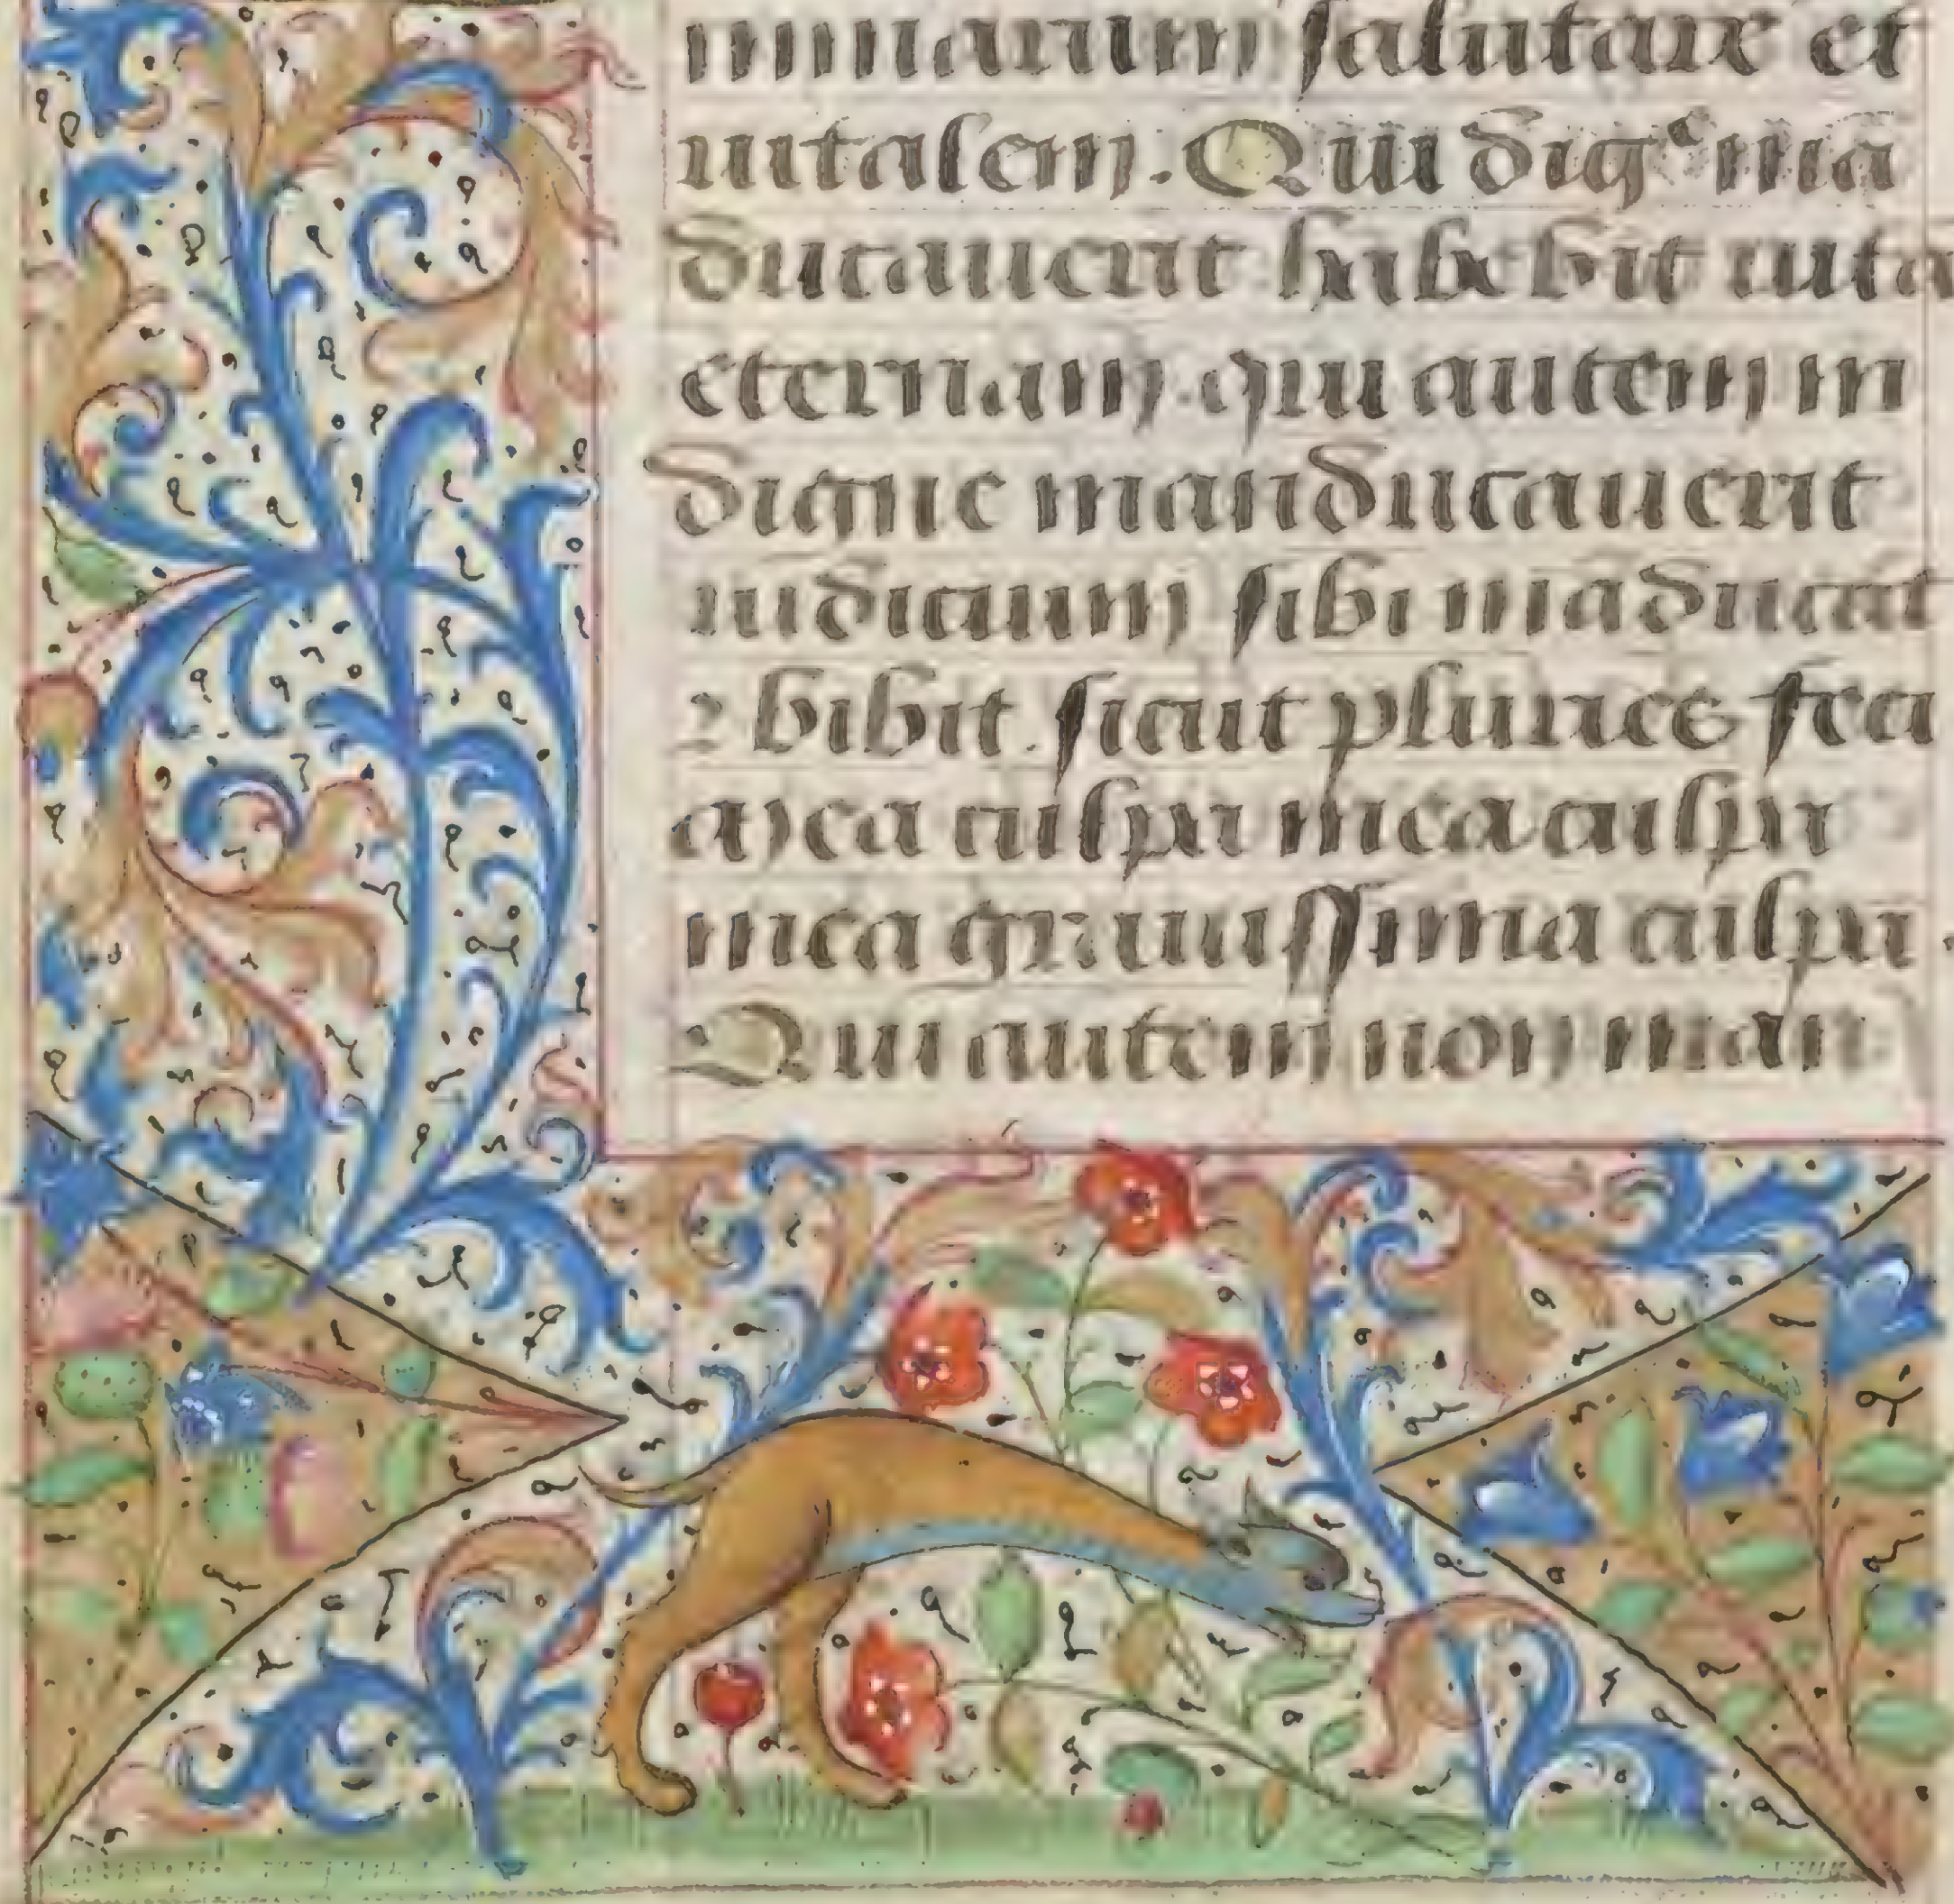 mmarum salutare et
uitalem. Qui dig<sup>e</sup> mā
ducauerit habebit uitā
eternam. qui autem in
digne manducauerit
iudicium sibi māducat
⁊ bibit. sicut plures feci
Mea culpa mea culpa
mea grauissima culpa.
Qui autem non man